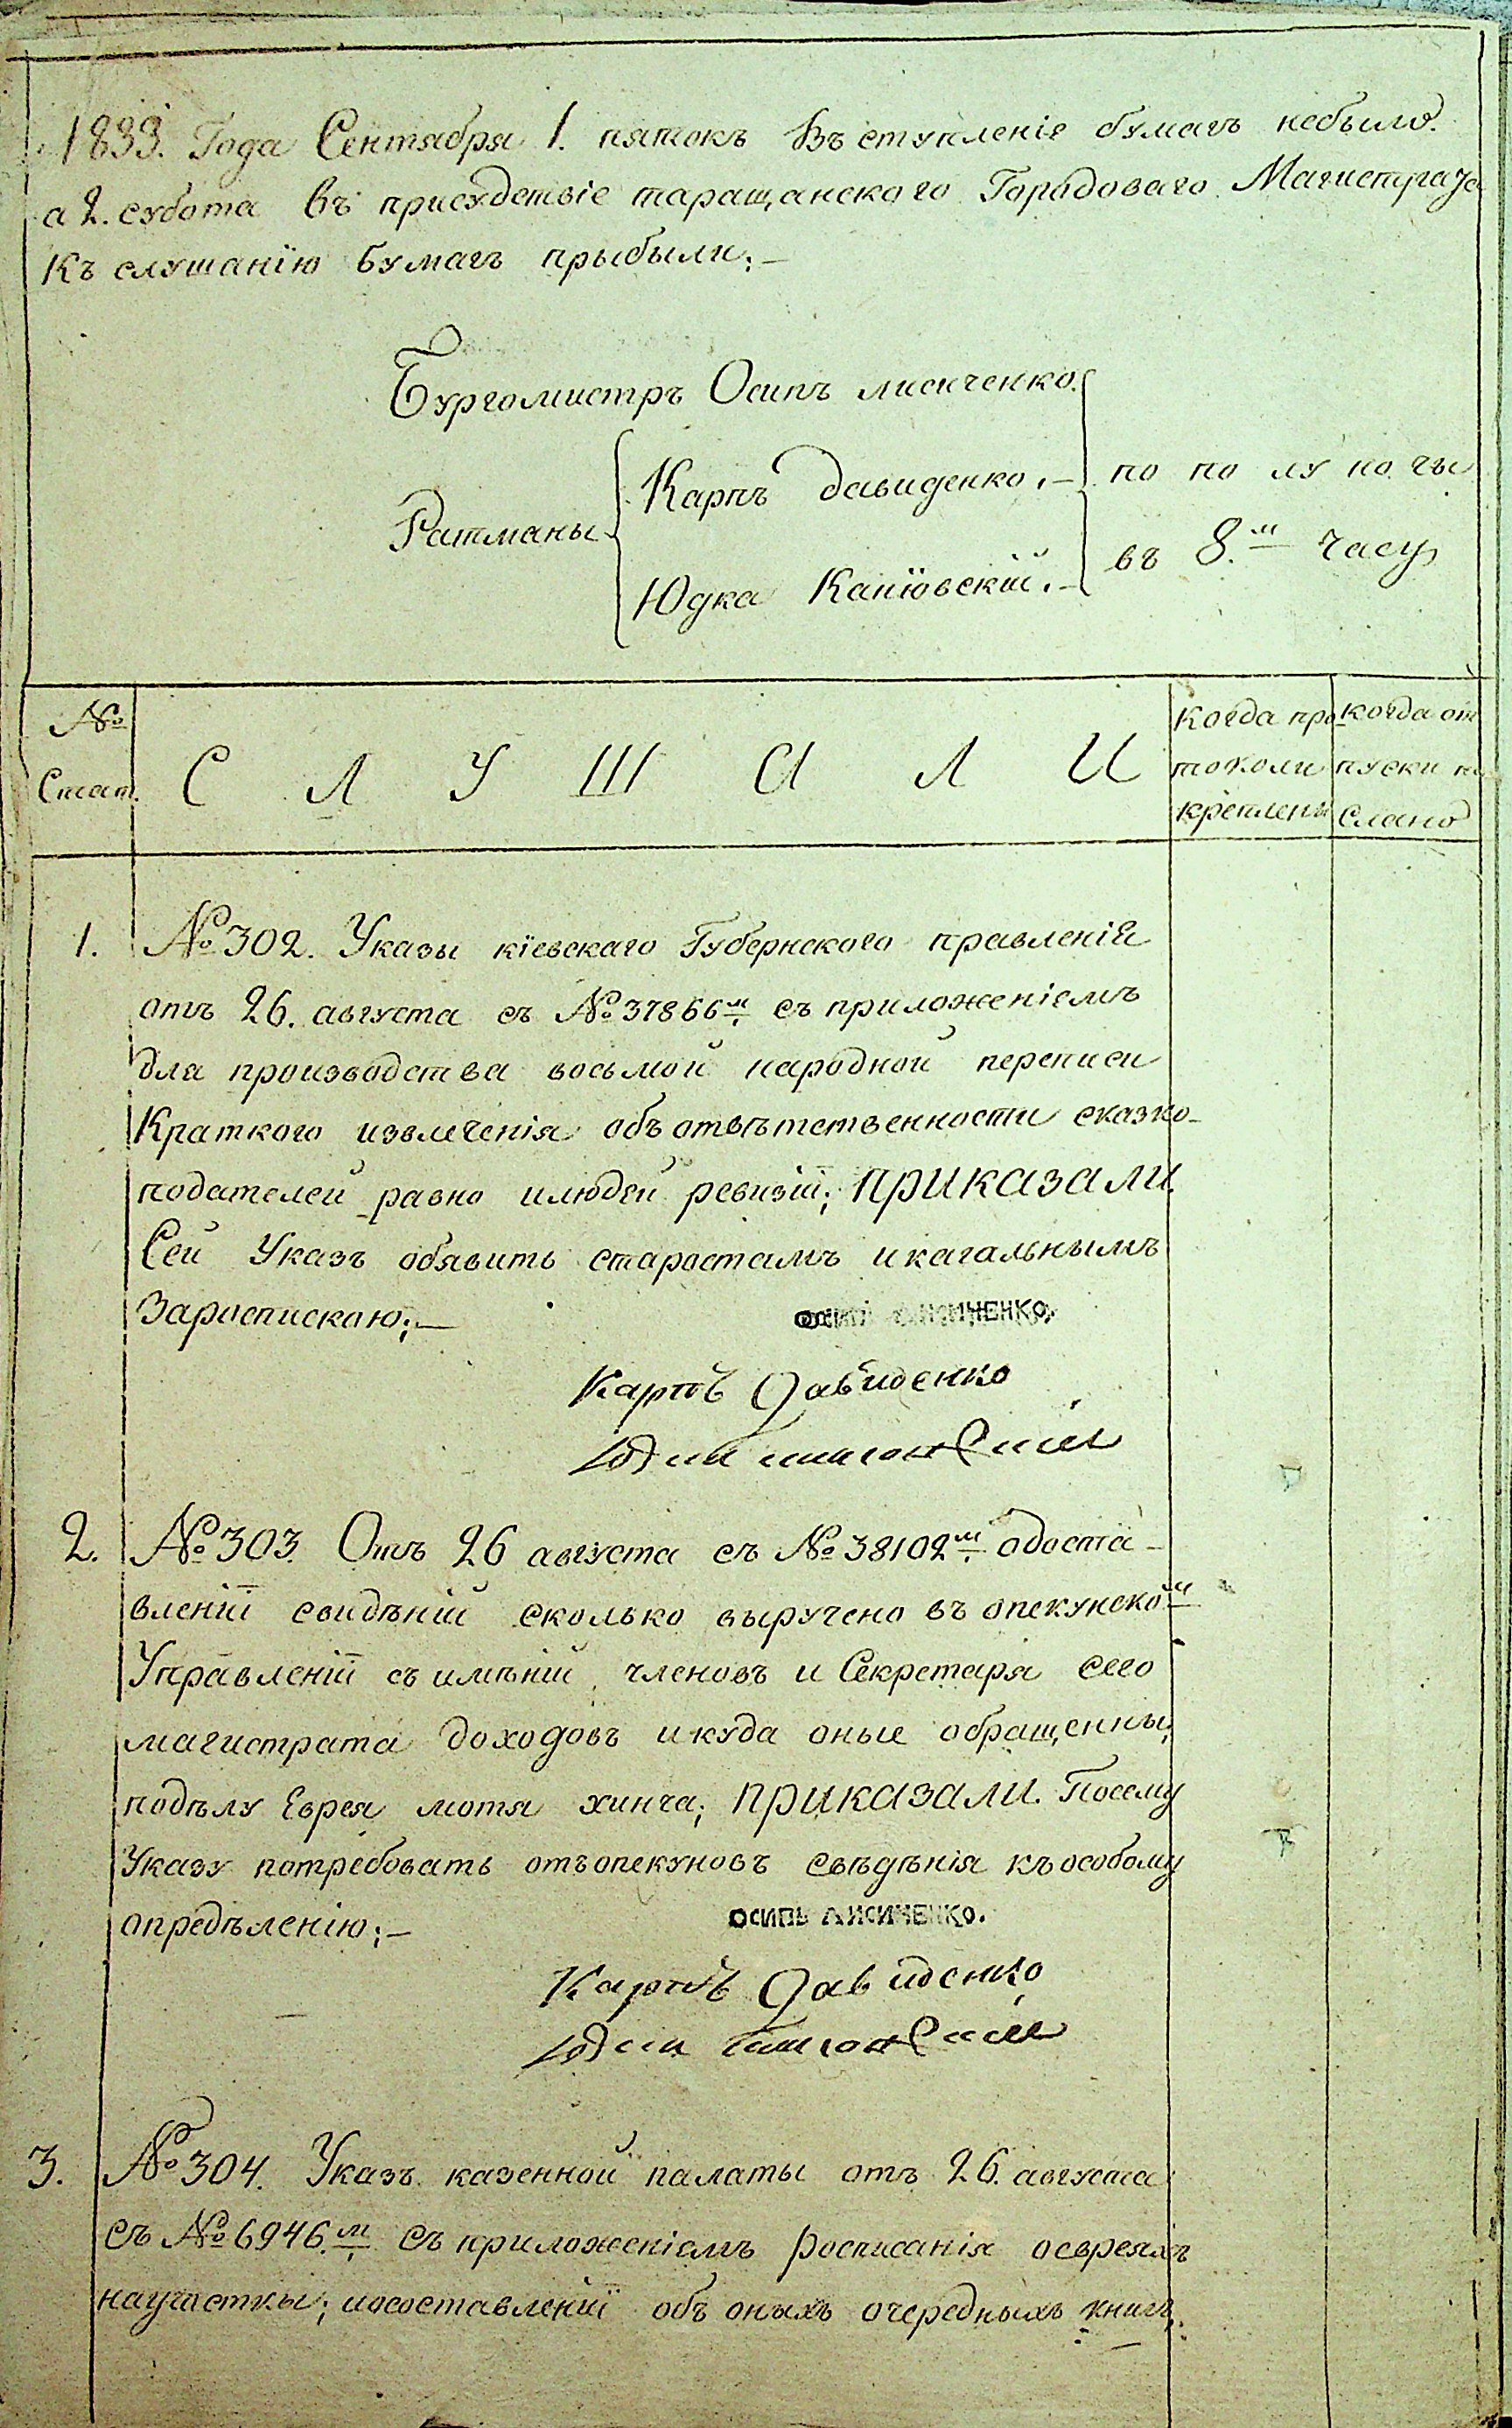 1833. Года Сентября 1. пятокъ Въ ступленіе бумагъ небыло.
а 2. субота въ присудствіе таращанского Городоваго Магистрата
Къ слушанію бумагъ прыбыли;—
Бургомистръ Осипъ лисиченко.
Ратманы
Карпъ давиденко.—
по по лу но чы
Юдка Каніовскій.—
въ 8.м часу
№ Стат.
С Л У Ш А Л И
Когда про
токоли
креплены
когда от
пуски по
слано
1. №302. Указы кіевскаго Губернского правленія
отъ 26. августа съ №37866м съ приложеніемъ
для производства восьмой народной переписи
Краткого извлеченія объ отвѣтственности сказко-
подателей равно илюдей ревизіи; приказали.
Сей Указъ обявить старостамъ икагальнымъ
Зароспискою;—
осипъ лисиченко.
Карпъ Давиденко
2. №303. Отъ 26 августа съ №38102м одоста-
вленіи свидѣній сколько выручено въ опекунском
Управленіи съ имѣній членовъ и Секретаря сего
магистрата доходовъ икуда оные обращенны,
подѣлу Еврея мотя хинча; приказали. Посему
Указу потребовать отъопекуновъ свѣдѣнія къособому
опредѣленію;—
осипъ лисиченко.
Карпъ Давиденко
3. №304. Указъ казенной палаты отъ 26. августа
съ №6946.м съ приложеніемъ росписанія оевреяхъ
научастки; иосоставленіи объ оныхъ очередныхъ книгъ,